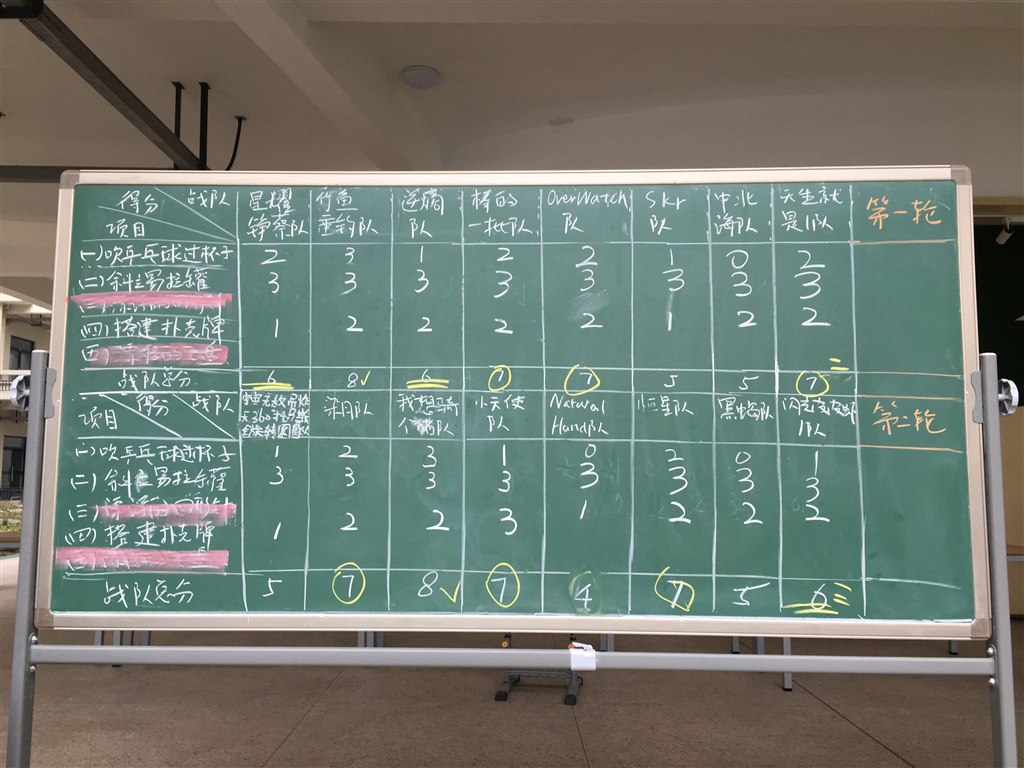 得分 战队 星耀 竹鱼 逆熵 棒的 OverWatch Skr 中北 天生就 第一轮
项目 铮察队 垂钓队 队 一批队 队 队 海队 是1队
(一)吹乒乓球过杯子 2 3 1 2 2 1 0 2
(二)斜拉易拉罐 3 3 3 3 3 3 3 3
(四)搭建扑克牌 1 2 2 2 2 1 2 2
(五)
战队总分 6 8✓ 6 7 7 5 5 7
得分 战队 队 我想骑 小天使 Natural 恒星队 队 队 第二轮
项目 个 队 队 Hand队
(一)吹乒乓球过杯子 1 2 3 1 0 2 0 1
(二)斜拉易拉罐 3 3 3 3 3 3 3 3
(三)
(四)搭建扑克牌 1 2 2 3 1 2 2 2
战队总分 5 7 8✓ 7 4 7 5 6